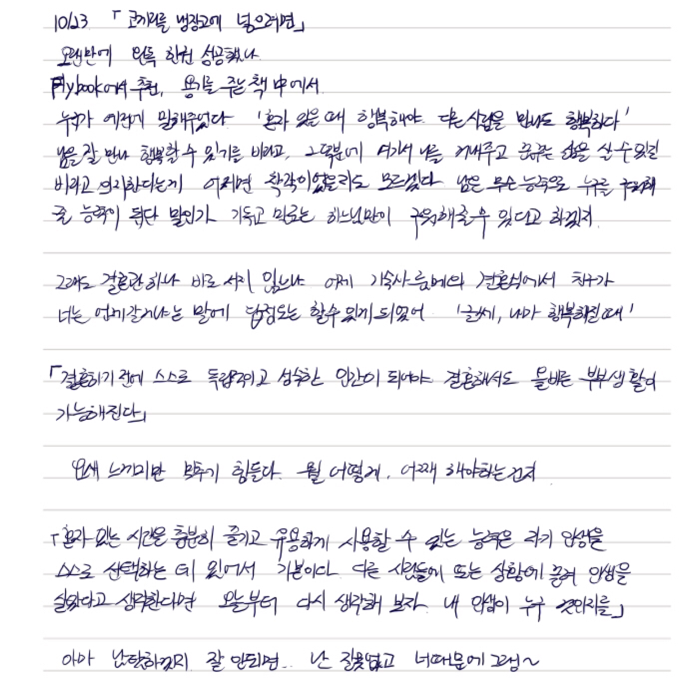 10/23 「코끼리를 냉장고에 넣으려면」
오랜만에 완독 한권 성공했나
Flybook에서 추천, 용기를 주는 책 中에서
누가 예전에 말해주었다 '혼자 있을 때 행복해야 다른 사람을 만나도 행복하다'
남을 잘 만나 행복할 수 있기를 바라고, 그 덕분에 여기서 나를 꺼내주고 꿈꾸는 삶을 살 수 있길
바라고 의지한다는게 어쩌면 착각이었을지도 모르겠다 남은 무슨 능력으로 누구를 구원해
줄 능력이 된단 말인가 기독교 말로는 하느님만이 구원해줄수 있다고 하겠지
그래도 결혼관 하나 바로 서지 않느냐 어제 기숙사 룸메의 결혼식에서 친구가
너는 언제갈거냐는 말에 답정도는 할수 있게 되었어 '글쎄, 나 혼자 행복해질 때'
「결혼하기 전에 스스로 독립적이고 성숙한 인간이 되어야 결혼해서도 올바른 부부생활이
가능해진다」
요새 느끼지만 멈추기 힘들다. 뭘 어떻게, 어째 해야하는건지
「혼자 있는 시간을 충분히 즐기고 유용하게 사용할 수 있는 능력은 자기 인생을
스스로 선택하는 데 있어서 기본이다. 다른 사람들에 또는 상황에 끌려 인생을
살았다고 생각한다면 오늘부터 다시 생각해 보자. 내 인생이 누구 것인지를」
아마 남탓하겠지 잘 안되면.. 난 잘못없고 너때문에 그렇~